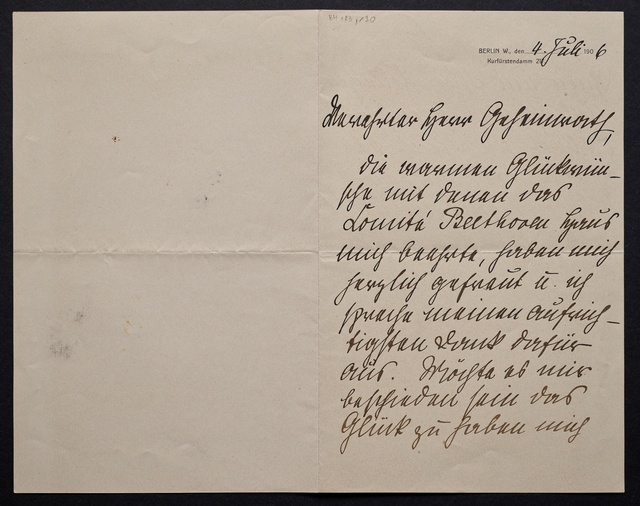 BERLIN W., den 4. Juli 1906
Kurfürstendamm
Verehrter Herr Geheimrath,
die warmen Glückwün-
sche mit denen das
Comité Beethoven Haus
mich beehrte, haben mich
herzlich gefreut u. ich
spreche meinen aufrich-
tigsten Dank dafür
aus. Möchte es mir
beschieden sein das
Glück zu haben mich